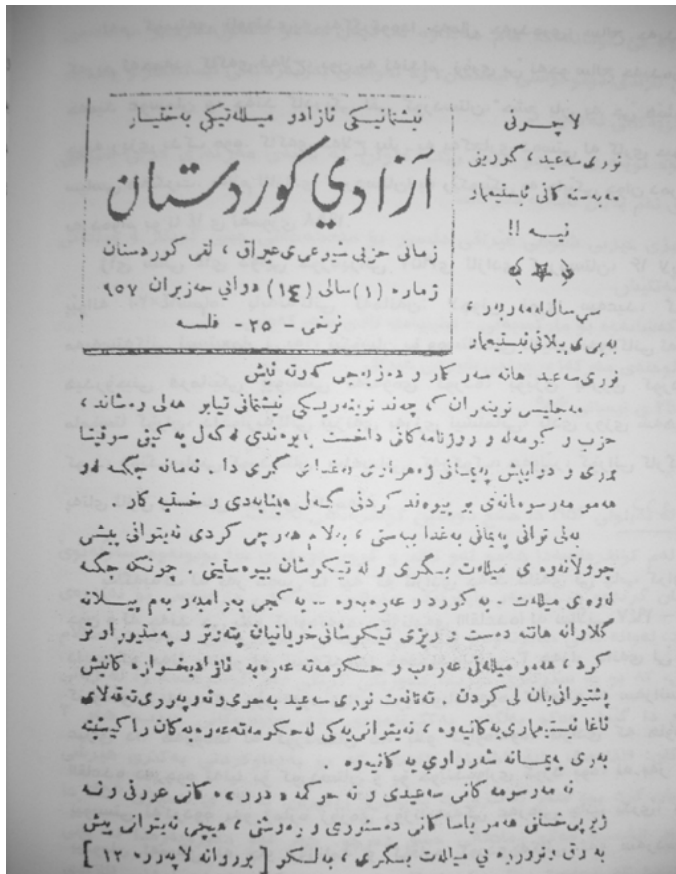 نیشتمانیکی ئازادو میللەتیکی بەختیار
آزادي کوردستان
زمانی حزبی شیوعی ی عیراق ، لقی کوردستان
ژمارە (١) سالی (١٤) دوانی حەزیران ٩٥٧
نرخی - ٢٥ - فلسە
لاچونی
نوری سەعید ، گورینی
مەبەستەکانی ئاستیعمار
نیسە !!
سی سال لەمەوبەری
بەپی ی پیلانی ئیستیعمار
نوری سەعید هاتە سەر کار و دەزوجی کەوتە ئیش
مەجلیسی نوینەران کە چەند نوینەریکی نیشتمانی تیابو هەلی وەشاند ،
حزب و کومەلە و روژنامەکانی داخست پەیوەندی لەگەل یەکیتی سوفیتا
بری و دوایش پەیمانی ژەهراوی بەغدای گری دا . ئەمانە جگە لەو
هەمو مەرسومانەی بو پیوەند کردنی گەل هینابەدی و خستیە کار .
بەلی توانی پەیمانی بەغدا ببەستی ، بەلام هەرچی کردی نەیتوانی پیشی
جوولانەوەی میللەت بگری و لە تیکوشان بیوەستینی . چونکە جگە
لەوەی میللەت - بە کورد و عەرەبەوە -- بە گجی بەرامبەر بەم پیلانە
گلاوانە هاتنە دەست و ریزی تیکوشانی خویانیان پتەوتر و پەستیوراوتر
کرد ، هەمو میللەتی عەرەب و حکومەتە عەرەبە ئازادیخوازەکانیش
پشتیوانی یان لی کردن . تەنانەت نوری سەعید بەخوی و ئەوپەری تەقەلای
ئاغا ئیستیعماری یەکانیەوە ، نەیتوانی یەکی لە حکومەتە عەرەبەکان راکیشیتە
بەری پەیمانە شەرراوی یەکانیەوە .
نە مەرسومەکانی سەعیدی و نە حوکمە دررەکانی عورفی و نە
ژیرپی خستنی هەمو یاساکانی دەستوری و رەوشتی ، هیچی نەیتوانی پیش
بە رق و توررەیی میللەت بگری ، بەلکو [ برروانە لاپەررە ١٢ ]